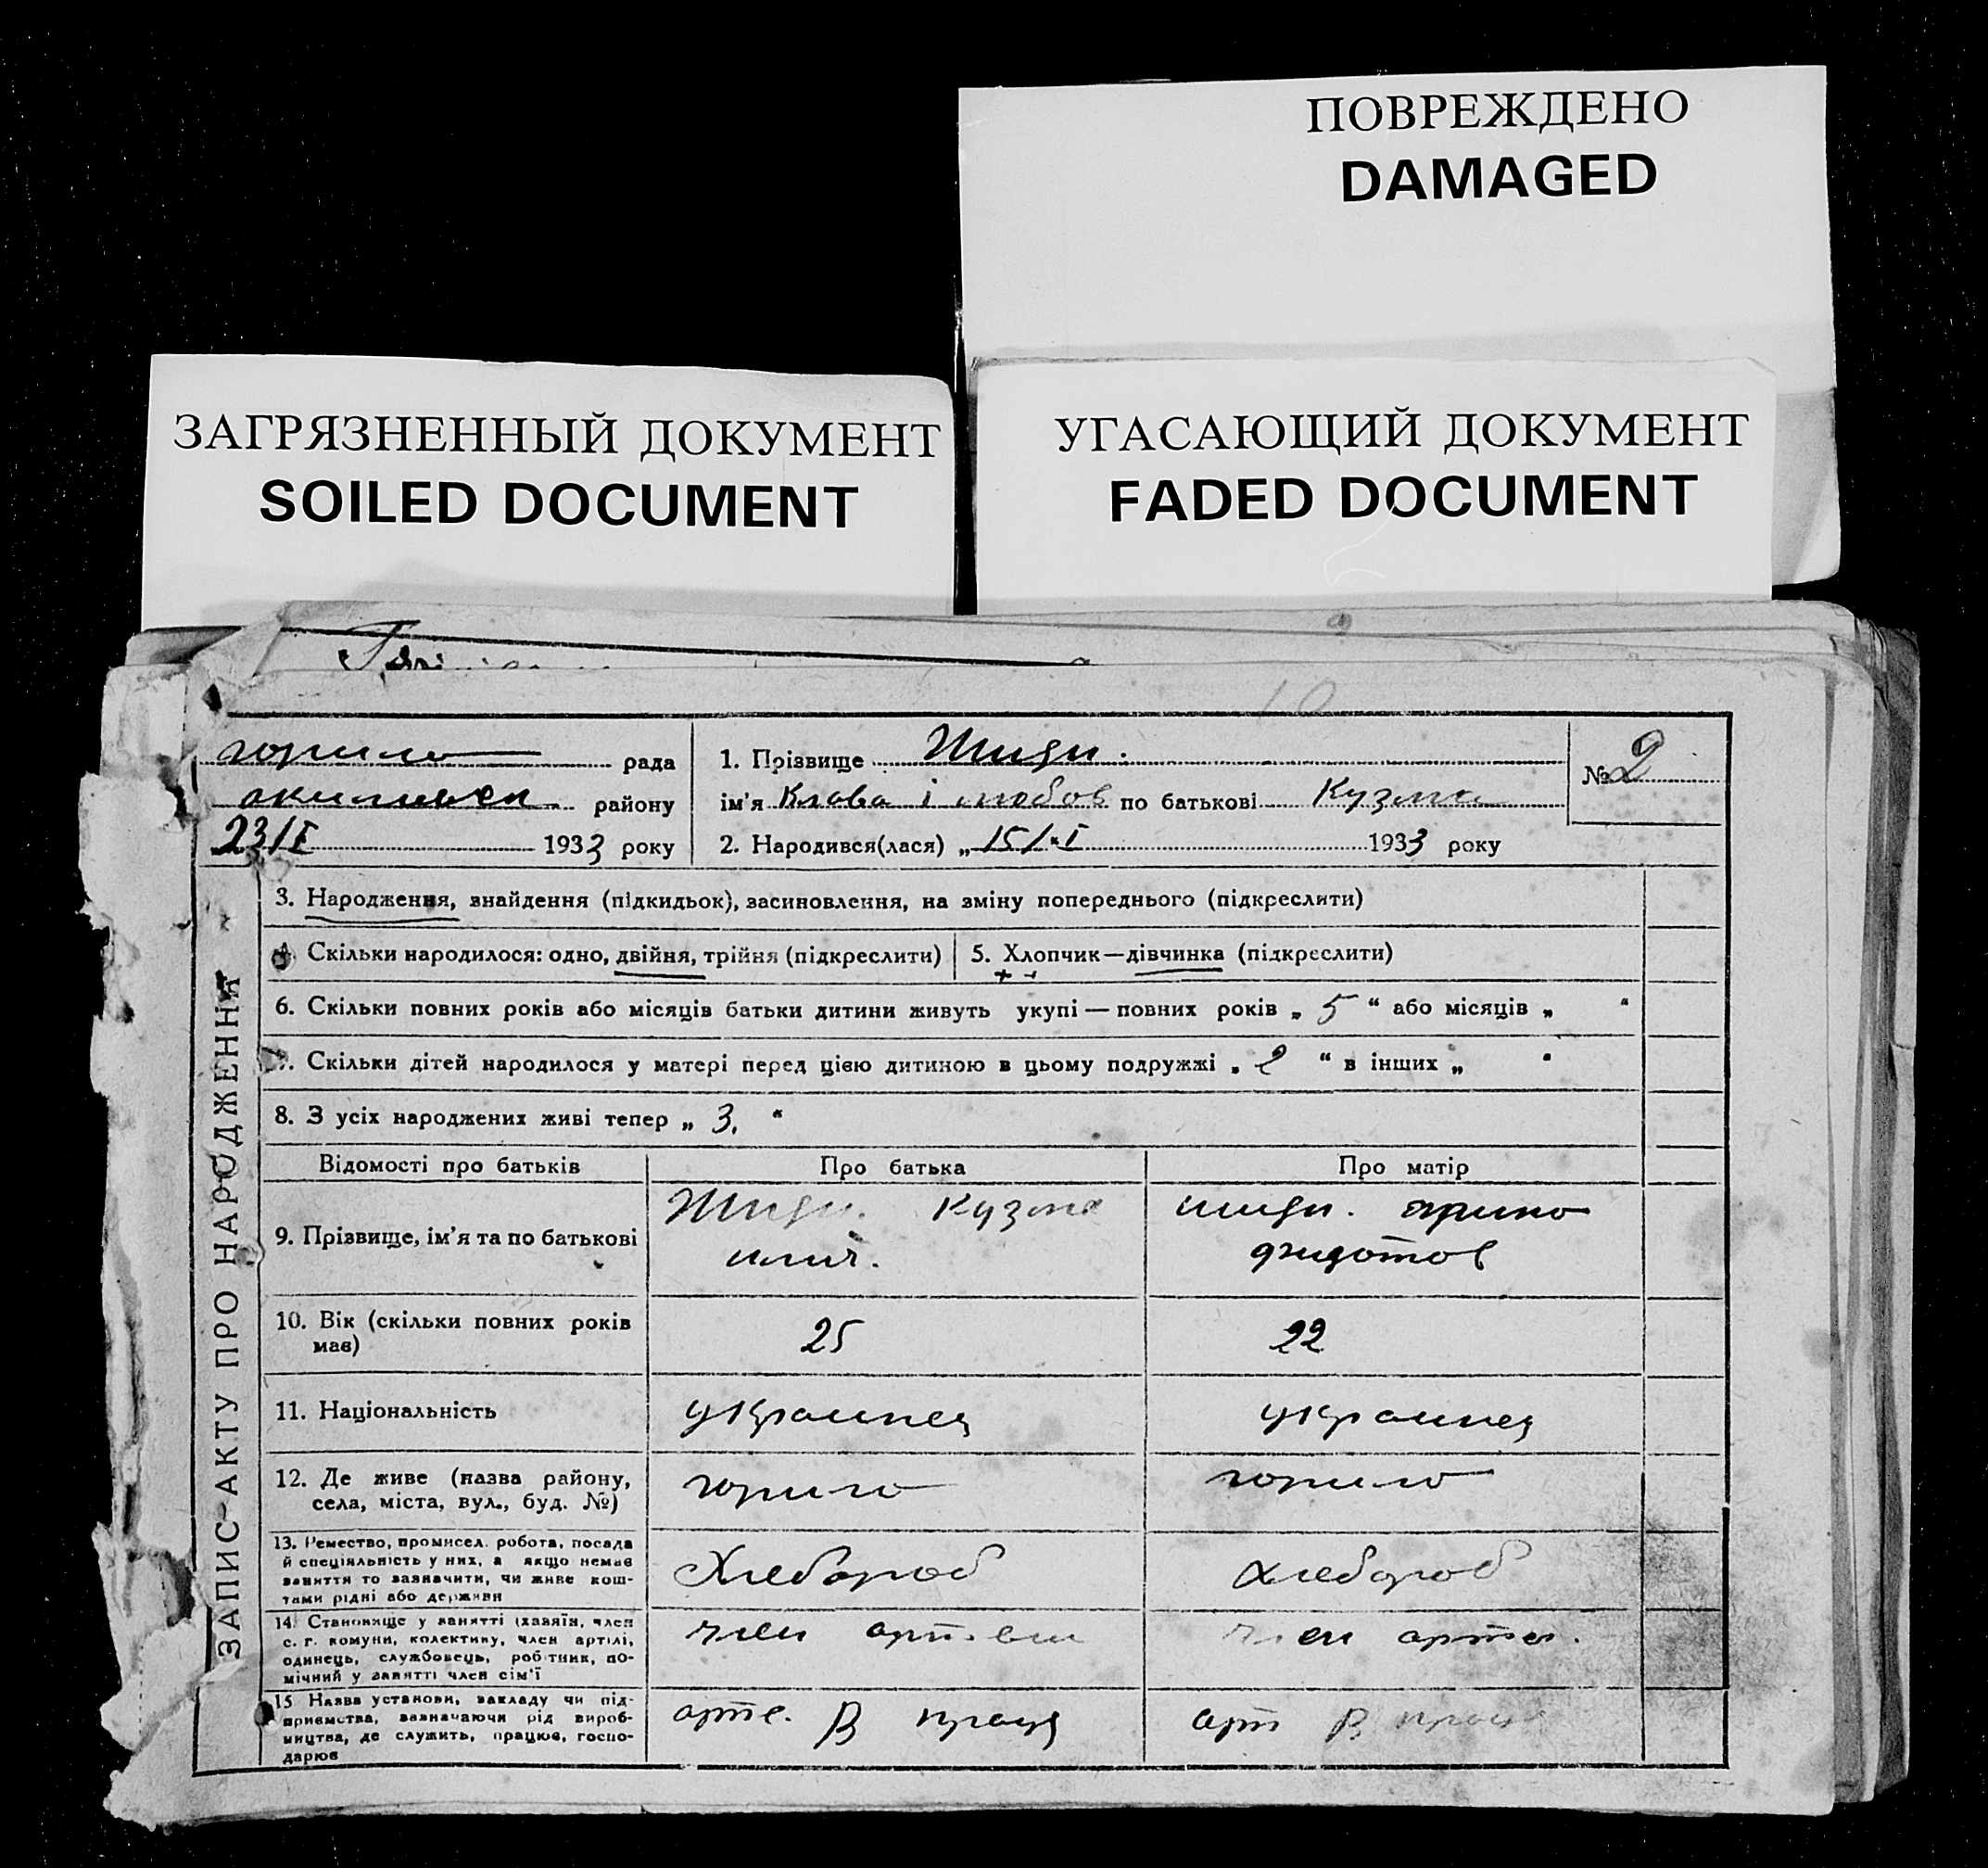 ПОВРЕЖДЕНО
DAMAGED
ЗАГРЯЗНЕННЫЙ ДОКУМЕНТ
SOILED DOCUMENT
УГАСАЮЩИЙ ДОКУМЕНТ
FADED DOCUMENT
рада
району
23/I 1933 року
1. Прізвище Шиди.
ім'я Клава і любов по батькові Кузма
2. Народився(лася) „ 15/I 1933 року
№ 2
ЗАПИС АКТУ ПРО НАРОДЖЕННЯ
3. Народження, знайдення (підкидьок), засиновлення, на зміну попереднього (підкреслити)
4. Скільки народилося: одно, двійня, трійня (підкреслити)
5. Хлопчик—дівчинка (підкреслити)
6. Скільки повних років або місяців батьки дитини живуть укупі — повних років „ 5 “ або місяців „ “
7. Скільки дітей народилося у матері перед цією дитиною в цьому подружжі „ 2 “ в інших „ “
8. З усіх народжених живі тепер „ 3. “
Відомості про батьків
Про батька
Про матір
9. Прізвище, ім'я та по батькові
Шиди. Кузма
илич.
шиди. орино
фидотов
10. Вік (скільки повних років
має)
25
22
11. Національність
украинец
украинец
12. Де живе (назва району,
села, міста, вул., буд. №)
13. Ремество, промисел. робота, посада
й спеціяльність у них, а якщо немає
заняття то зазначити, чи живе кош-
тами рідні або держави
Хлебороб
хлебороб
14. Становище у занятті (хазяїн, член
с. г. комуни, колективу, член артілі,
одинець, службовець, робітник, по-
мічний у занятті член сім'ї
член артели
член артел.
15 Назва установи, закладу чи під-
приємства, зазначаючи рід вироб-
ництва, де служить, працює, госпо-
дарює
арте. В праця
арт В праця